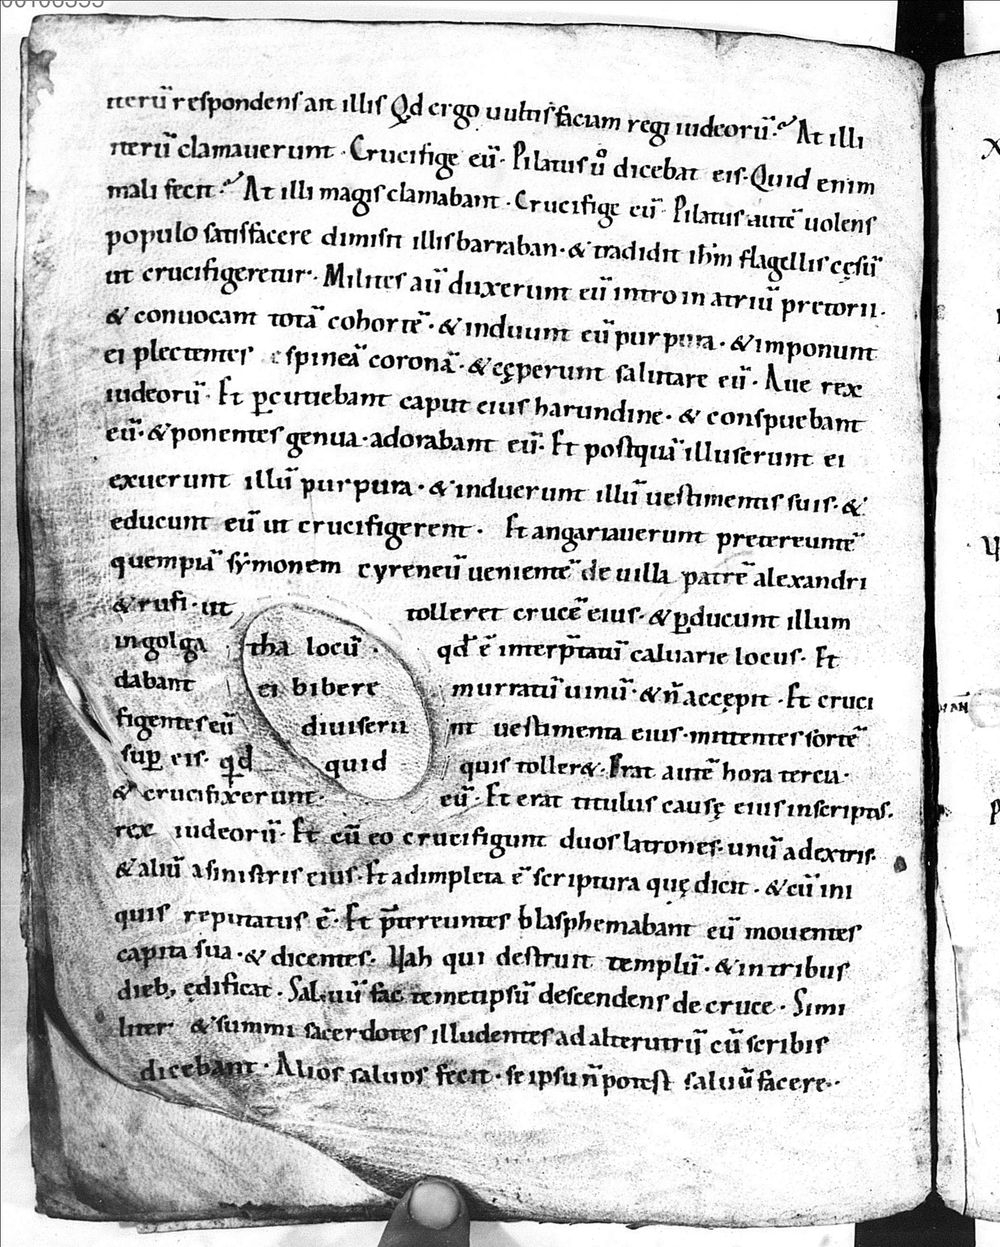 iterū respondens ait illis Qd ergo uultis faciam regi iudeorū. At illi
iterū clamauerunt. Crucifige eū. Pilatus ů dicebat eis. Quid enim
mali fecit. At illi magis clamabant. Crucifige eū. Pilatus autē uolens
populo satisfacere dimisit illis barraban. & tradidit ihm flagellis cęsū
ut crucifigeretur. Milites aū duxerunt eū intro in atriū pretorii.
& conuocant totā cohortē. & induunt eū purpura. & imponunt
ei plectentes spineā coronā. & cęperunt salutare eū. Aue rex
iudeorū. Et ꝑcutiebant caput eius harundine. & conspuebant
eū. & ponentes genua. adorabant eū. Et postquā illuserunt ei
exuerunt illū purpura. & induerunt illū uestimentis suis. &
educunt eū ut crucifigerent. Et angariauerunt pretereuntē
quempiā symonem cyreneū uenientē de uilla patrē alexandri
& rufi. ut tolleret crucē eius. & ꝑducunt illum
in golga tha locū. qđ ē interp̄tatū caluarie locus. Et
dabant ei bibere murratū uinū. & n̄ accępit. Et cruci
figentes eū diuiserū nt uestimenta eius. mittentes sortē
suꝑ eis. qd quid quis toller&. Erat autē hora tercia.
& crucifixerunt. eū. Et erat titulus causę eius inscriptus.
rex iudeorū. Et cū eo crucifigunt duos latrones. unū a dextris.
& aliū a sinistris eius. Et adimpleta ē scriptura quę dicit. & cū ini
quis reputatus ē. Et p̄tereuntes blasphemabant eū mouentes
capita sua. & dicentes. Uah qui destruit templū. & in tribus
dieb; ędificat. Saluū fac temetipsū descendens de cruce. Simi
liter & summi sacerdotes illudentes ad alterutrū cū scribis
dicebant. Alios saluos fecit. se ipsū n̄ potest saluū facere.